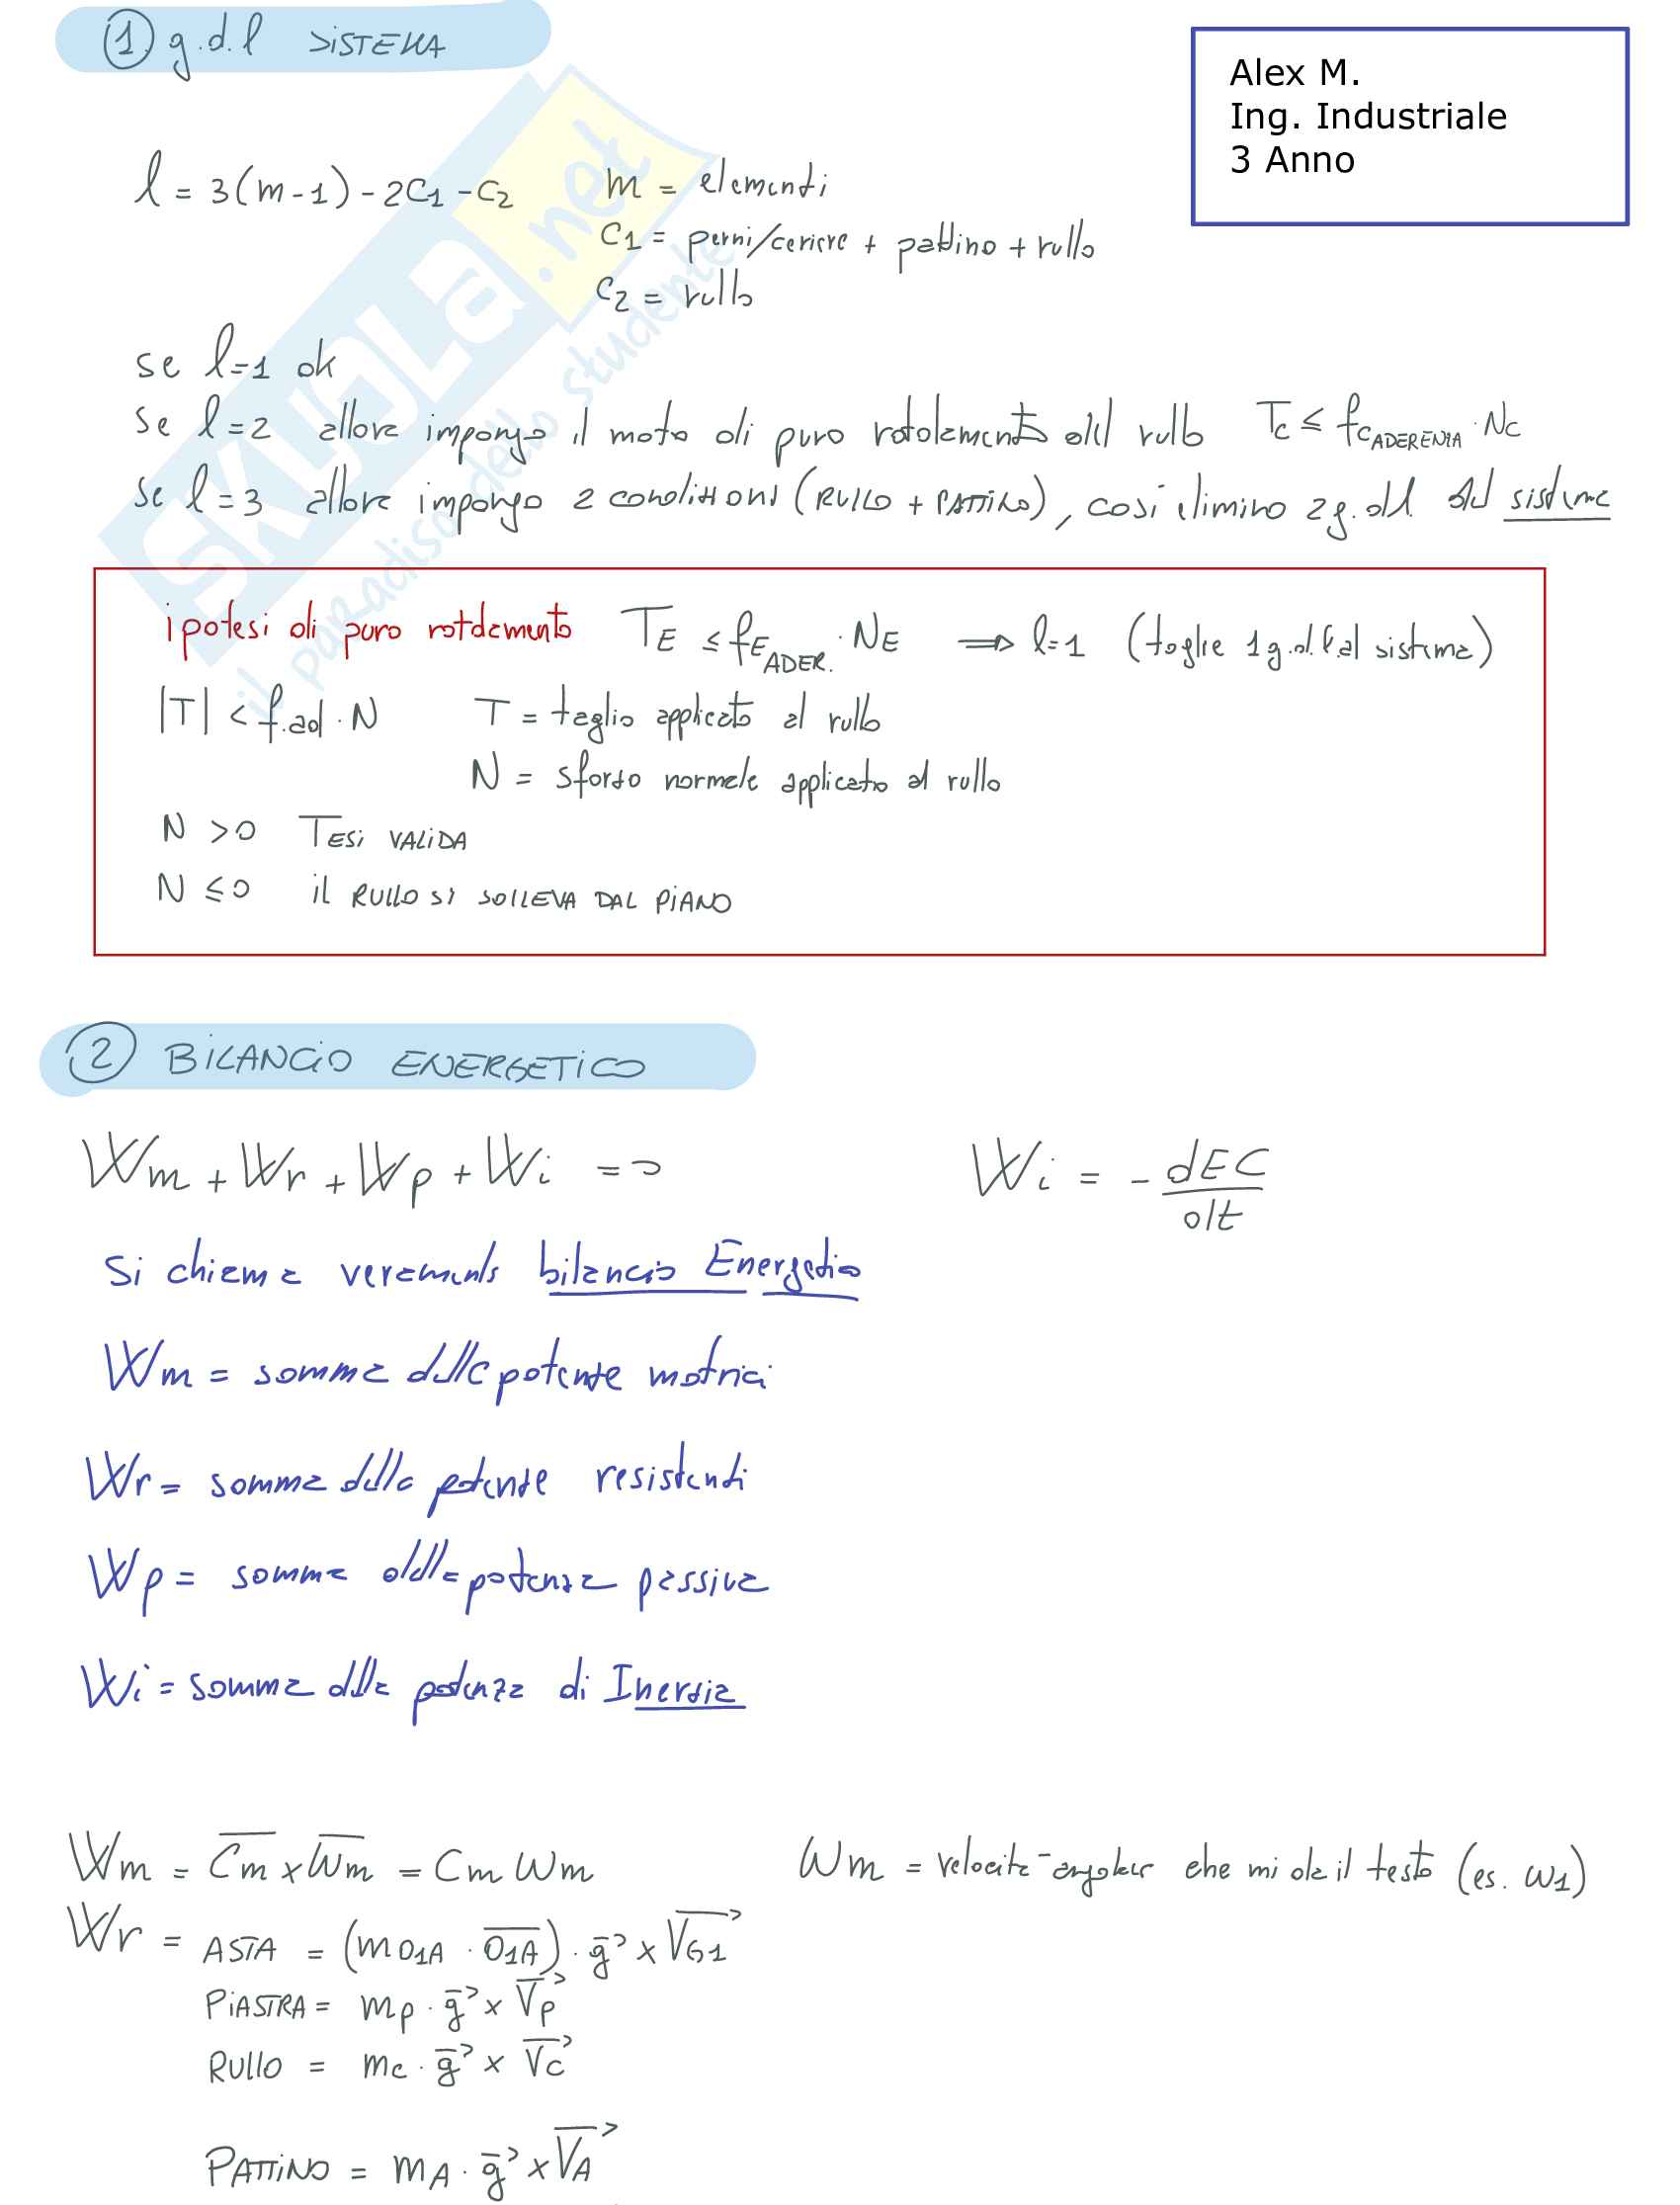 1. g.d.l SISTEMA
Alex M.
Ing. Industriale
3 Anno
l = 3(m-1) - 2C1 - C2
m = elementi
C1 = perni/cerniere + pattino + rullo
C2 = rullo
se l=1 ok
se l=2 allora impongo il moto di puro rotolamento del rullo Tc ≤ fc ADERENZA · Nc
se l=3 allora impongo 2 condizioni (RULLO + PATTINO), così elimino 2 g.d.l. del sistema
ipotesi di puro rotolamento TE ≤ fE ADER. · NE ⟹ l=1 (toglie 1 g.d.l. al sistema)
|T| < f.ad · N
T = taglio applicato al rullo
N = sforzo normale applicato al rullo
N >0 TESI VALIDA
N ≤0 il RULLO SI SOLLEVA DAL PIANO
2 BILANCIO ENERGETICO
Wm + Wr + Wp + Wi = 0
Wi = - dEC/dt
Si chiama veramente bilancio Energetico
Wm = somma delle potenze motrici
Wr = somma delle potenze resistenti
Wp = somma della potenza passiva
Wi = somma della potenza di Inerzia
Wm = Cm × ωm = Cm ωm
ωm = velocità angolare che mi da il testo (es. ω1)
Wr = ASTA = (m O1A · O1A) · g × VG1
PIASTRA = mp · g × Vp
RULLO = mc · g × Vc
PATTINO = mA · g × VA
SKUOLA.net
il paradiso dello studente